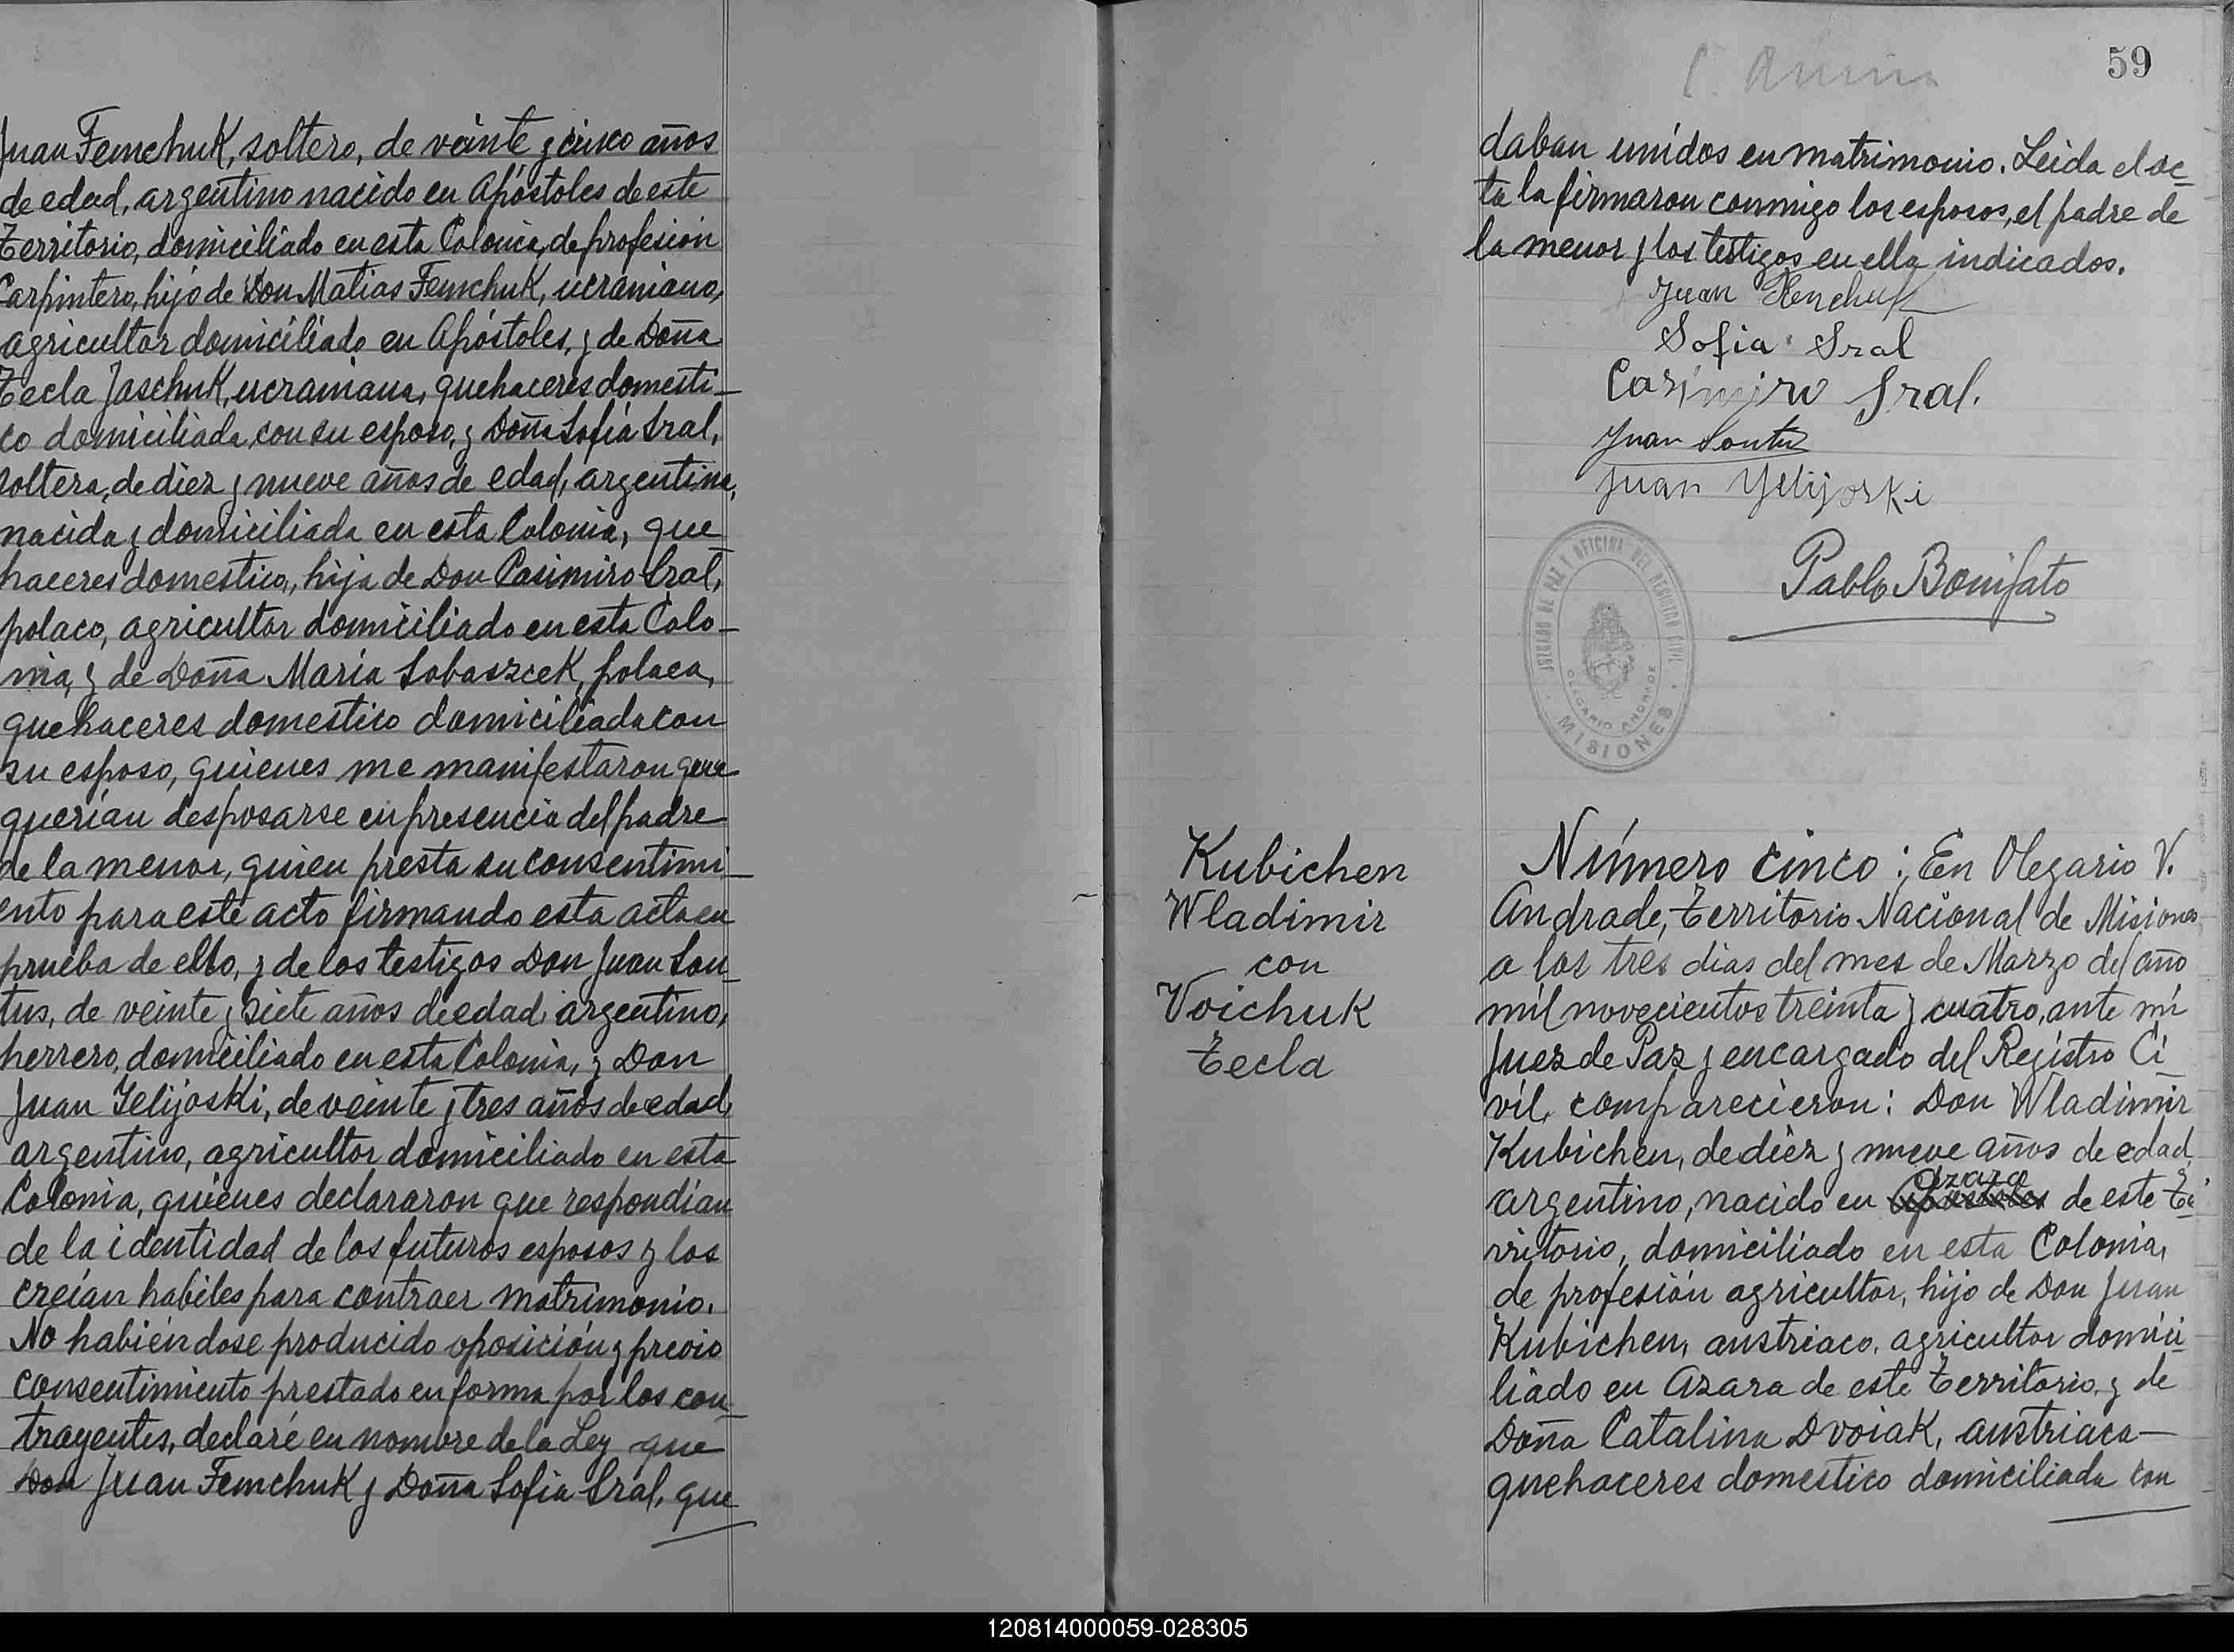 Juan Femchuk, soltero, de veinte y cinco años
de edad, argentino nacido en Apóstoles de este
Territorio, domiciliado en esta Colonia, de profesión
Carpintero, hijo de Don Matias Femchuk, ucraniano,
agricultor domiciliado en Apóstoles, y de Doña
Tecla Jaschuk, ucraniana, quehaceres domesti_
co domiciliada con su esposo, y Doña Sofia Sral,
soltera, de diez y nueve años de edad, argentina,
nacida y domiciliada en esta Colonia, que_
haceres domestico, hija de Don Casimiro Sral,
polaco, agricultor domiciliado en esta Colo_
nia, y de Doña Maria Sobaszcek, polaca,
quehaceres domestico domiciliada con
su esposo, quienes me manifestaron que
querían desposarse en presencia del padre
de la menor, quien presta su consentimi_
ento para este acto firmando esta acta en
prueba de ello, y de los testigos Don Juan Son_
tus, de veinte y siete años de edad, argentino,
herrero, domiciliado en esta Colonia, y Don
Juan Yelijoski, de veinte y tres años de edad,
argentino, agricultor domiciliado en esta
Colonia, quienes declararon que respondían
de la identidad de los futuros esposos y los
creían habiles para contraer matrimonio.
No habiéndose producido oposición y previo
consentimiento prestado en forma por los con_
trayentes, declaré en nombre de la Ley que
Don Juan Femchuk y Doña Sofia Sral, que
59
daban unidos en matrimonio. Leida el ac_
ta la firmaron conmigo los esposos, el padre de
la menor y los testigos en ella indicados.
Juan Femchuk
Sofia Sral
Casimiro Sral.
Juan Sontus
Juan Yelijorski
Pablo Bonifato
JUZGADO DE PAZ Y OFICINA DEL REGISTRO CIVIL
OLEGARIO ANDRADE
MISIONES
Kubichen
Wladimir
con
Voichuk
Tecla
Número cinco: En Olegario V.
Andrade, Territorio Nacional de Misiones
a los tres dias del mes de Marzo del año
mil novecientos treinta y cuatro, ante mí
Juez de Paz y encargado del Registro Ci_
vil, comparecieron: Don Wladimir
Kubichen, de diez y nueve años de edad
azara
argentino, nacido en Apóstoles de este Te_
rritorio, domiciliado en esta Colonia,
de profesión agricultor, hijo de Don Juan
Kubichen, austriaco, agricultor domici_
liado en Azara de este Territorio, y de
Doña Catalina Dvoiak, austriaca_
quehaceres domestico domiciliada con
120814000059-028305